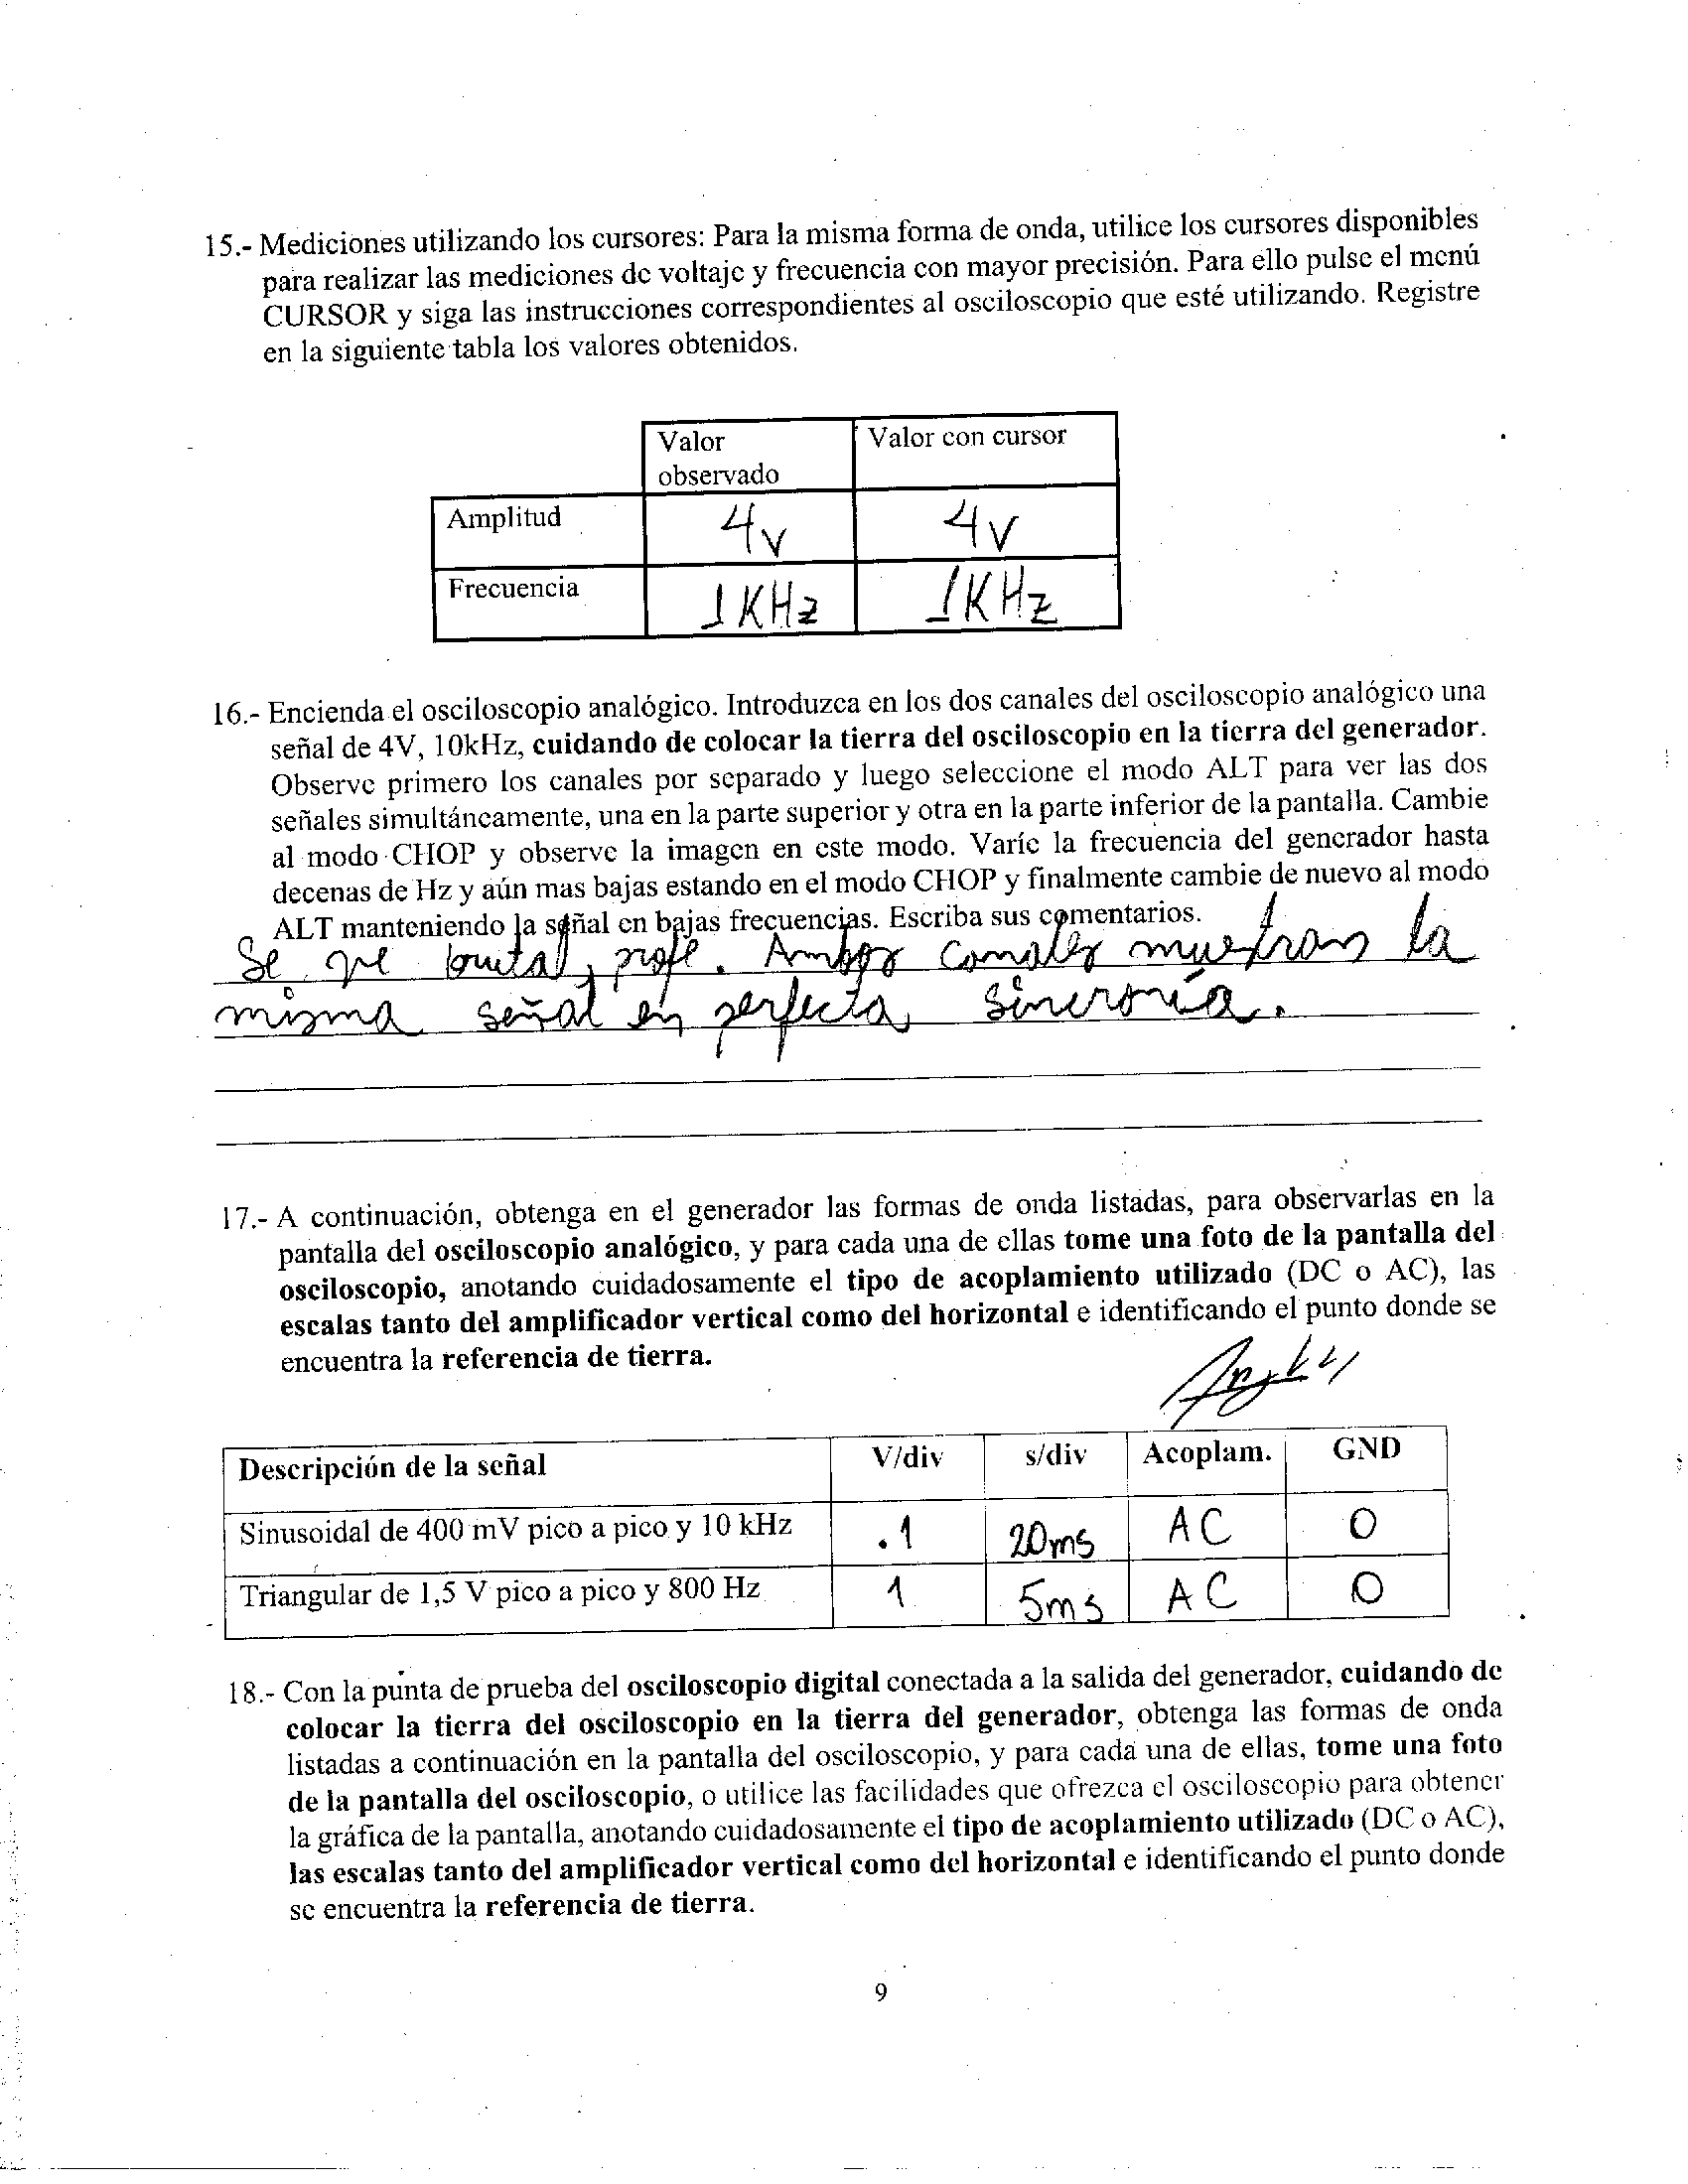 15.- Mediciones utilizando los cursores: Para la misma forma de onda, utilice los cursores disponibles
para realizar las mediciones de voltaje y frecuencia con mayor precisión. Para ello pulse el menú
CURSOR y siga las instrucciones correspondientes al osciloscopio que esté utilizando. Registre
en la siguiente tabla los valores obtenidos.
Valor observado Valor con cursor
Amplitud 4v 4v
Frecuencia 1KHz 1KHz
16.- Encienda el osciloscopio analógico. Introduzca en los dos canales del osciloscopio analógico una
señal de 4V, 10kHz, cuidando de colocar la tierra del osciloscopio en la tierra del generador.
Observe primero los canales por separado y luego seleccione el modo ALT para ver las dos
señales simultáneamente, una en la parte superior y otra en la parte inferior de la pantalla. Cambie
al modo CHOP y observe la imagen en este modo. Varíe la frecuencia del generador hasta
decenas de Hz y aún mas bajas estando en el modo CHOP y finalmente cambie de nuevo al modo
ALT manteniendo la señal en bajas frecuencias. Escriba sus comentarios.
Se ve brutal, profe. Ambos canales muestran la
misma señal en perfecta sincronía.
17.- A continuación, obtenga en el generador las formas de onda listadas, para observarlas en la
pantalla del osciloscopio analógico, y para cada una de ellas tome una foto de la pantalla del
osciloscopio, anotando cuidadosamente el tipo de acoplamiento utilizado (DC o AC), las
escalas tanto del amplificador vertical como del horizontal e identificando el punto donde se
encuentra la referencia de tierra.
Descripción de la señal V/div s/div Acoplam. GND
Sinusoidal de 400 mV pico a pico y 10 kHz .1 20ms AC 0
Triangular de 1,5 V pico a pico y 800 Hz 1 5ms AC 0
18.- Con la punta de prueba del osciloscopio digital conectada a la salida del generador, cuidando de
colocar la tierra del osciloscopio en la tierra del generador, obtenga las formas de onda
listadas a continuación en la pantalla del osciloscopio, y para cada una de ellas, tome una foto
de la pantalla del osciloscopio, o utilice las facilidades que ofrezca el osciloscopio para obtener
la gráfica de la pantalla, anotando cuidadosamente el tipo de acoplamiento utilizado (DC o AC),
las escalas tanto del amplificador vertical como del horizontal e identificando el punto donde
se encuentra la referencia de tierra.
9